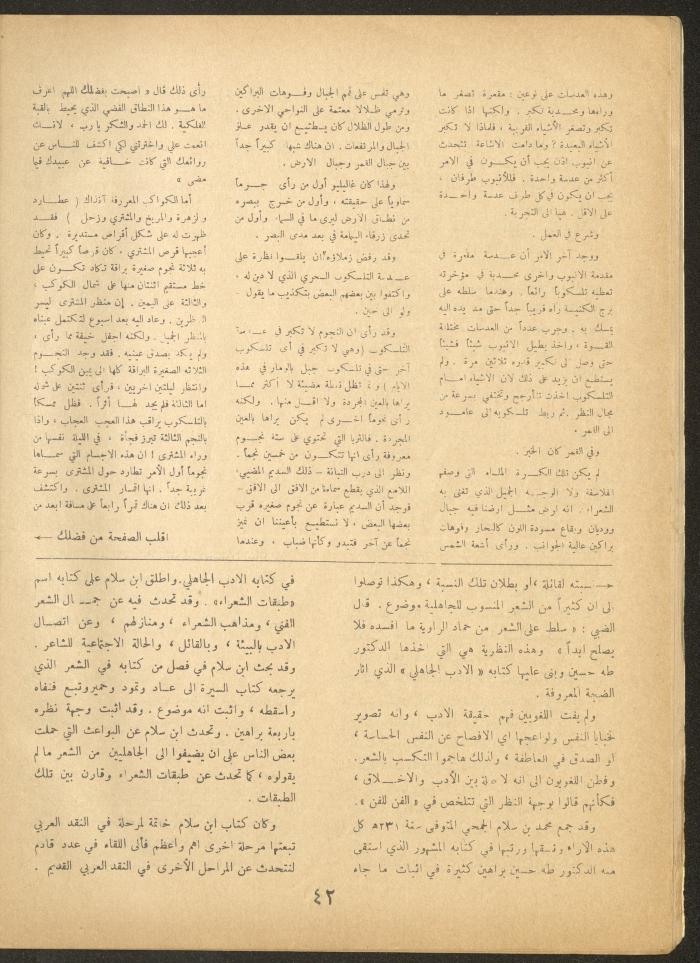 وهذه العدسات على نوعين : مقعرة تصغر ما
وراءها ومحـدبة تكبر . ولكنها اذا كانت
تكبر وتصغر الأشياء القريبة ، فلماذا لا تكبر
الأشياء البعيدة ? وما دامت الاشاعة تتحدث
عن انبوب اذن يجب أن يكـون في الامر
أكثر من عدسة واحدة . فللأنبوب طرفان ،
يجب ان يكون في كل طرف عدسة واحـدة
على الاقل . هيا الى التجربة .
وشرع في العمل .
ووجد آخر الامر أن عـدسة مقعرة في
مقدمة الانبوب واخرى محـدبة في مؤخرته
تعطيه تلسكوباً رائعاً . وعندما سلطه على
برج الكنيسة رآه قريباً جداً حتى مد يده اليه
يمسك به . وجرب عدداً من العدسات مختلفة
القـوة ، واخذ يطيل الانبوب شيئاً فشيئاً
حتى وصل الى تكبير قدره ثلاثين مرة . ولم
يستطع ان يزيد على ذلك لان الاشياء امـام
التلسكوب اخذت تتأرجح وتختفي بسرعة من
مجال النظر . ثم ربط تلسكوبه الى عامـود
الى القمر .
وفي القمر كان الخبر .
لم يكن تلك الكـرة الملساء التي وصفها
الفلاسفة ولا الوجـه الجميل الذي تغنى به
الشعراء . انه ارض مثـل ارضنا فيه جبال
ووديان وبقاع مسودة اللون كالبحار وفوهات
براكين عالية الجوانب . ورأى أشعة الشمس
وهي تنعكس على قمم الجبال وفـوهات البراكين
وترمي ظـلالا معتمة على النواحي الاخرى .
ومن طول الظلال كان يستطيع ان يقدر علـو
الجبال والمرتفعات . ان هناك شبهاً كبيراً جداً
بين جبال القمر وجبال الارض .
ولهذا كان غاليليو أول من رأى جـرماً
سماوياً على حقيقته ، وأول من خـرج ببصره
من نطاق الارض ليرى ما في السماء وأول من
تحدى زرقاء اليمامة في بعد مدى البصر .
وقد رفض زملاؤه ان يلقـوا نظرة على
عـدسة التلسكوب السحري الذي لا دين له ،
واكتفوا بين بعضهم البعض بتكذيب ما يقول
ولو الى حين .
وقد رأى ان النجوم لا تكبر في عـدسة
التلسكوب ( وهي لا تكبر في أي تلسكوب
آخر حتى في تلسكوب جبل بالومار في هذه
الايام ) وتظل نقطة مضيئة لا أكثر مما
يراها بالعين المجردة ولا اقـل منها . ولكنه
رأى نجوماً اخـرى لم يكن يراها بالعين
المجردة . فالثريا التي تحتوي على ستة نجـوم
معروفة رأى انها تتكـون من خمسين نجماً .
ونظر الى درب التبانة – ذلك السديم المضيء
اللامع الذي يقطع سماءنا من الافق الى الافق –
فوجد أن السديم عبارة عن نجوم صغيرة قرب
بعضها البعض ، لا نستطيع بأعيننا ان نميز
نجماً عن آخر فتبدو وكأنها ضباب . وعندما
رأى ذلك قال « اصبحت بفضلك اللهم اعرف
ما هـو هذا النطاق الفضي الذي يحيط بالقبة
الفلكية . لك الحمد والشكر يا رب ، لانك
انعمت علي واخترتني لكي اكشف للناس عن
روائعك التي كانت خـافية عن عبيدك فيما
مضى »
أما الكواكب المعروفة آنذاك ( عطـارد
والزهرة والمريخ والمشتري وزحل ) فقـد
ظهرت له على شكل أقراص مستديرة . وكان
أعجبها قرص المشتري ، كان قرصاً كبيراً تحيط
به ثلاثة نجوم صغيرة براقة تكاد تكـون على
خط مستقيم اثنتان منها على شمال الكوكب ،
والثالثة على اليمين . إن منظر المشترى ليسر
الناظرين . وعاد اليه بعد اسبوع لتكتحل عيناه
بالمنظر الجميل . ولكنه اجفل خيفة مما رأى ،
ولم يكد يصدق عينيه . فقد وجد النجـوم
الثلاثة الصغيرة البراقة كلها الى يمين الكوكب !
وانتظر ليلتين اخريين ، فرأى اثنتين على شماله
اما الثالثة فلم يجد لهـا أثراً . فظل ممسكاً
بالتلسكوب يراقب هذا العجب العجاب ، واذا
بالنجم الثالثة تبرز فجأة ، في الليلة نفسها من
وراء المشتري ! ان هذه الاجسام التي سمـاها
نجوماً أول الأمر تطارد حول المشتري بسرعة
غريبة جداً . انها اقمار المشترى . واكتشف
بعد ذلك ان هناك قمراً رابعاً على مسافة ابعد من
اقلب الصفحة من فضلك ←
نسبته لقائلة ، أو بطلان تلك النسبة ، وهكذا توصلوا
الى ان كثيراً من الشعر المنسوب للجاهلية موضوع . قال
الضبي : « سلط على الشعر من حماد الراوية ما افسده فلا
يصلح ابداً » وهذه النظرية هي التي اخذها الدكتور
طه حسين وبنى عليها كتابه « الادب الجاهلي » الذي اثار
الضجة المعروفة .
ولم يفت اللغويين فهم حقيقة الادب ، وانه تصوير
لخبايا النفس ولواعجها اي الافصاح عن النفس الحساسة ،
او الصدق في العاطفة ، ولذلك هاجموا التكسب بالشعر .
وفطن اللغويون الى انه لا صلة بين الأدب والاخـلاق ،
فكأنهم قالوا بوجهة النظر التي تتلخص في « الفن للفن » .
وقد جمع محمد بن سلام الجمحي المتوفى سنة ٢٣١هـ كل
هذه الآراء ونسقها ورتبها في كتابه المشهور الذي استقى
منه الدكتور طه حسين براهين كثيرة في اثبات ما جاء
في كتابه الادب الجاهلي. واطلق ابن سلام على كتابه اسم
«طبقات الشعراء» . وقد تحدث فيه عن جمـال الشعر
الفني ، ومذاهب الشعراء ، ومنازلهم ، وعن اتصـال
الادب بالبيئة ، وبالقائل ، والحالة الاجتماعية للشاعر .
وقد بحث ابن سلام في فصل من كتابه في الشعر الذي
يرجعه كتاب السيرة الى عـاد وثمود وحمير وتبع فنفاه
واسقطه ، واثبت انه موضوع . وقد اثبت وجهة نظره
باربعة براهين . وتحدث ابن سلام عن البواعث التي حملت
بعض الناس على ان يضيفوا الى الجاهليين من الشعر ما لم
يقولوه ، كما تحدث عن طبقات الشعراء وقارن بين تلك
الطبقات .
وكان كتاب ابن سلام خاتمة لمرحلة في النقد العربي
تبعتها مرحلة اخرى اهم واعظم فالى اللقاء في عدد قادم
لنتحدث عن المراحل الأخرى في النقد العربي القديم .
٤٢